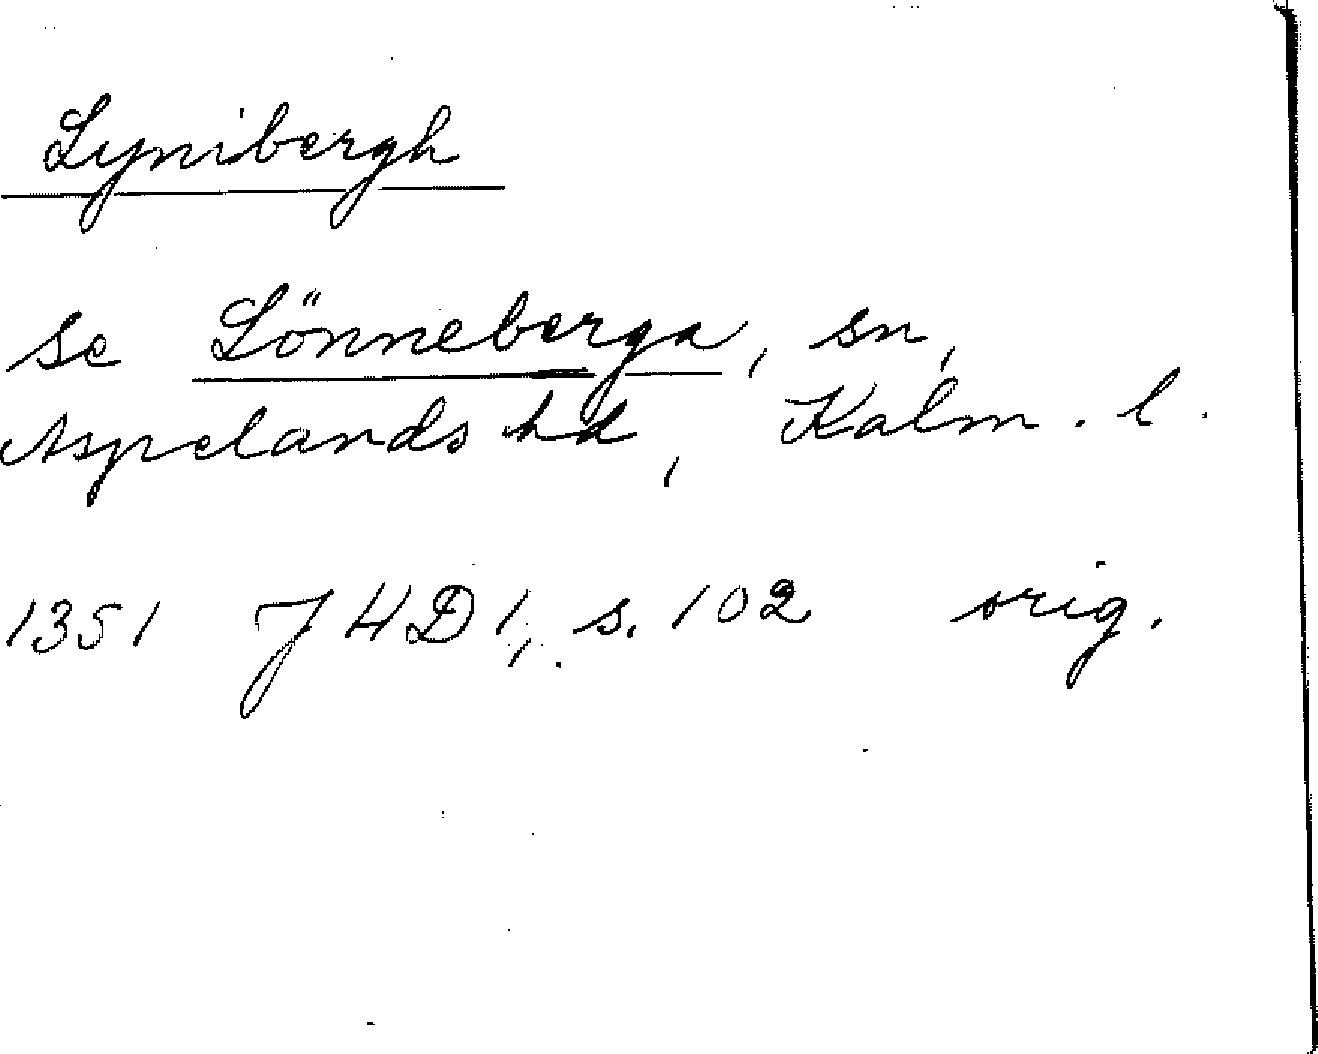 Lynibergh
se Lönneberga, sn,
Aspelands hd, Kalm. l.
1351 J 4 D 1, s. 102 orig.